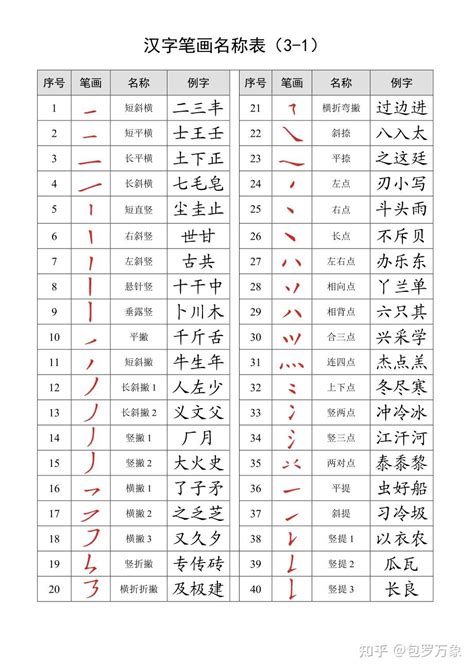 汉字笔画名称表（3-1）
序号 笔画 名称 例字 序号 笔画 名称 例字
1 短斜横 二三丰 21 横折弯撇 过边进
2 短平横 士王壬 22 斜捺 八入太
3 长平横 土下正 23 平捺 之这廷
4 长斜横 七毛皂 24 左点 刃小写
5 短直竖 尘圭止 25 右点 斗头雨
6 右斜竖 世甘 26 长点 不斥贝
7 左斜竖 古共 27 左右点 办乐东
8 悬针竖 十干中 28 相向点 丫兰单
9 垂露竖 卜川木 29 相背点 六只其
10 平撇 千斤舌 30 合三点 兴采学
11 短斜撇 牛生年 31 连四点 杰点羔
12 长斜撇1 人左少 32 上下点 冬尽寒
13 长斜撇2 义文父 33 竖两点 冲冷冰
14 竖撇1 厂月 34 竖三点 江汗河
15 竖撇2 大火史 35 两对点 泰黍黎
16 横撇1 了子矛 36 平提 虫好船
17 横撇2 之乏芝 37 斜提 习冷圾
18 横撇3 又久夕 38 竖提1 以衣农
19 竖折撇 专传砖 39 竖提2 瓜瓦
20 横折折撇 及极建 40 竖提3 长良
知乎 @包罗万象